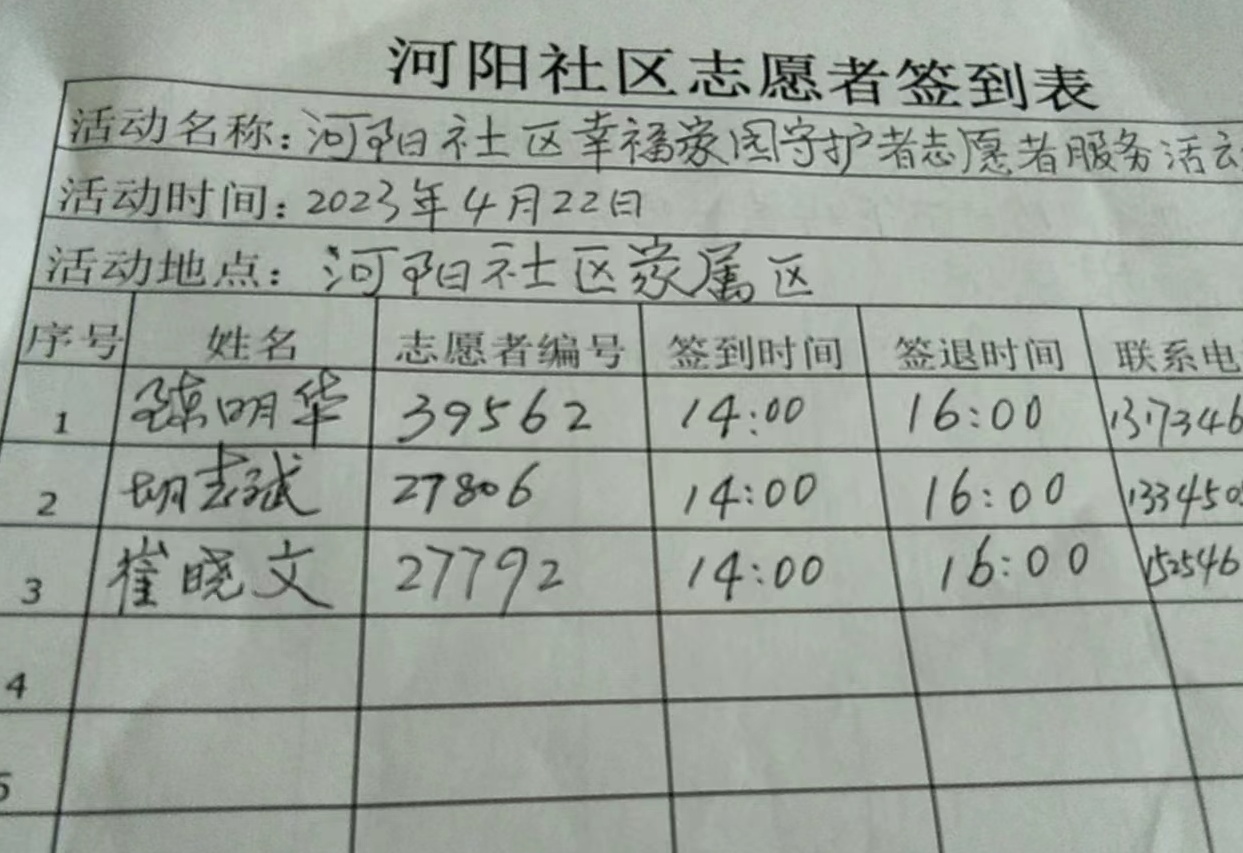 河阳社区志愿者签到表
活动名称：河阳社区幸福家园守护者志愿者服务活动
活动时间：2023年4月22日
活动地点：河阳社区家属区
序号 姓名 志愿者编号 签到时间 签退时间 联系电
1 明华 39562 14:00 16:00 1317346
2 胡志斌 27806 14:00 16:00 133450
3 崔晓文 27792 14:00 16:00 152546
4
5